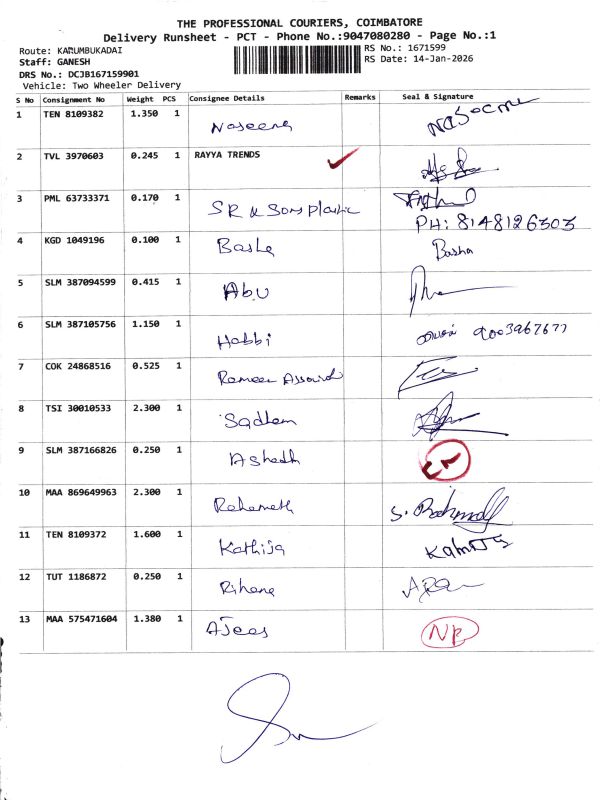 THE PROFESSIONAL COURIERS, COIMBATORE
Delivery Runsheet - PCT - Phone No.:9047080280 - Page No.:1
Route: KARUMBUKADAI
RS No.: 1671599
Staff: GANESH
RS Date: 14-Jan-2026
DRS No.: DCJB167159901
Vehicle: Two Wheeler Delivery
S No Consignment No Weight PCS Consignee Details Remarks Seal & Signature
1 TEN 8109382 1.350 1 Naseena
2 TVL 3970603 0.245 1 RAYYA TRENDS
3 PML 63733371 0.170 1 SR & Sons plastic
PH: 8148126303
4 KGD 1049196 0.100 1 Basha Basha
5 SLM 387094599 0.415 1 Abu
6 SLM 387105756 1.150 1 Habbi
7 COK 24868516 0.525 1 Rameer
8 TSI 30010533 2.300 1 Saddam
9 SLM 387166826 0.250 1
10 MAA 869649963 2.300 1 Rahamath
11 TEN 8109372 1.600 1 Kathija
12 TUT 1186872 0.250 1 Rihana
13 MAA 575471604 1.380 1 AJees